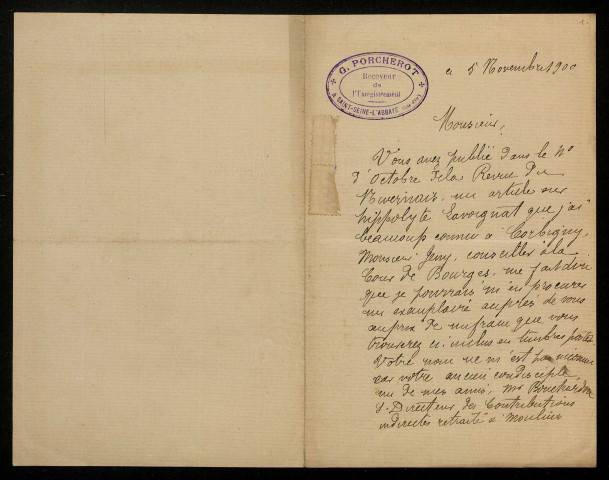 G. PORCHEROT
Receveur
de
l'Enregistrement
à SAINT-SEINE-L'ABBAYE (Côte-d'Or)
ce 5 Novembre 1900
Monsieur,
Vous avez publié dans le No
d'Octobre de la Revue du
Nivernais, un article sur
hippolyte Lavoignat que j'ai
beaucoup connu à Corbigny.
Monsieur Jeny, conseiller à la
Cour de Bourges, me fait dire
que je pourrais m'en procurer
un exemplaire auprès de vous
au prix de un franc que vous
trouverez ci-inclus en timbres poste.
Votre nom ne m'est pas inconnu
car votre ancien condisciple,
un de mes amis, Mr Bouchardon
S-Directeur des Contributions
indirectes retraité à Moulins